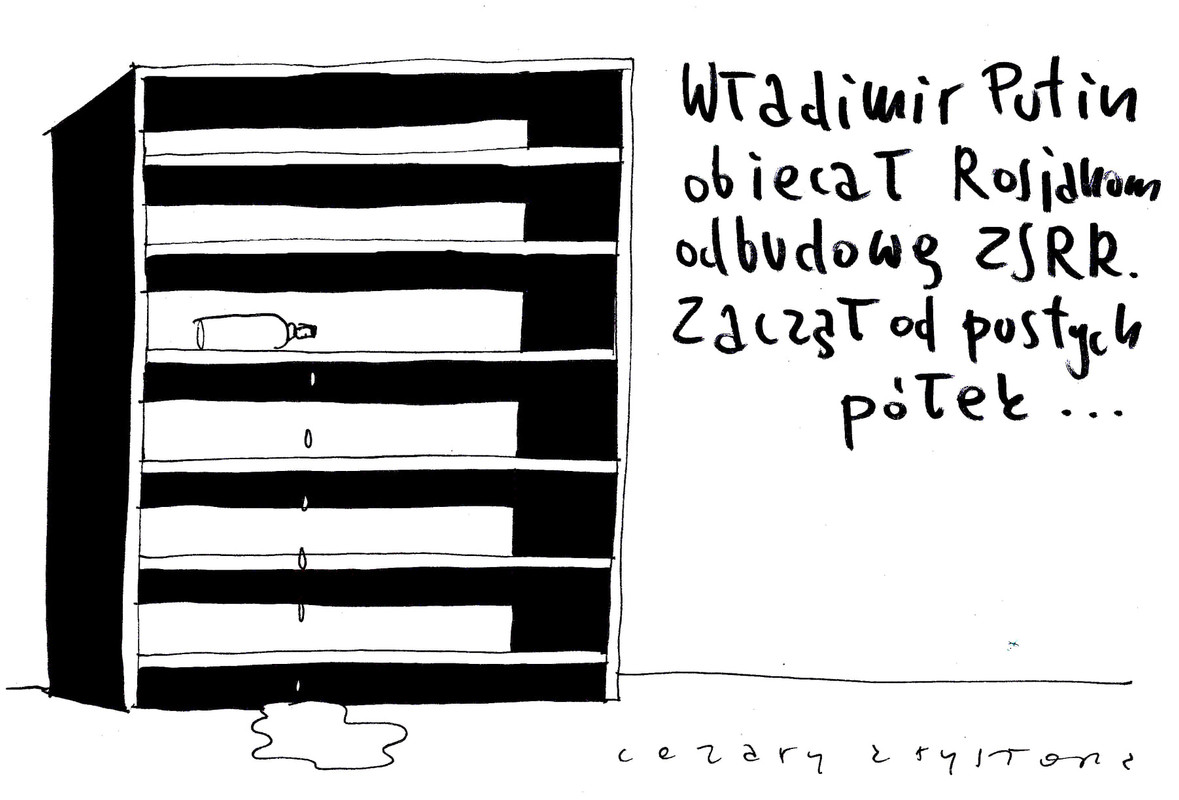 Władimir Putin
obiecał Rosjanom
odbudowę ZSRR.
Zaczął od pustych
półek ...
cezary krysztopa